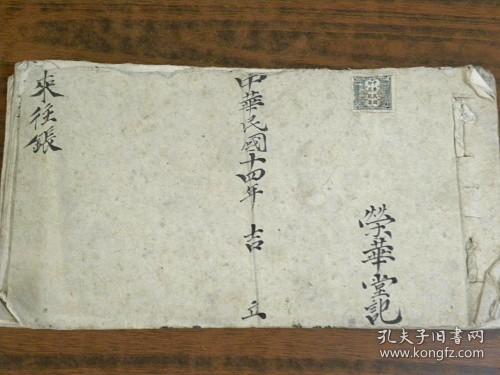 榮華堂記
中華民國十四年 吉 立
來往賬
孔夫子旧书网
www.kongfz.com